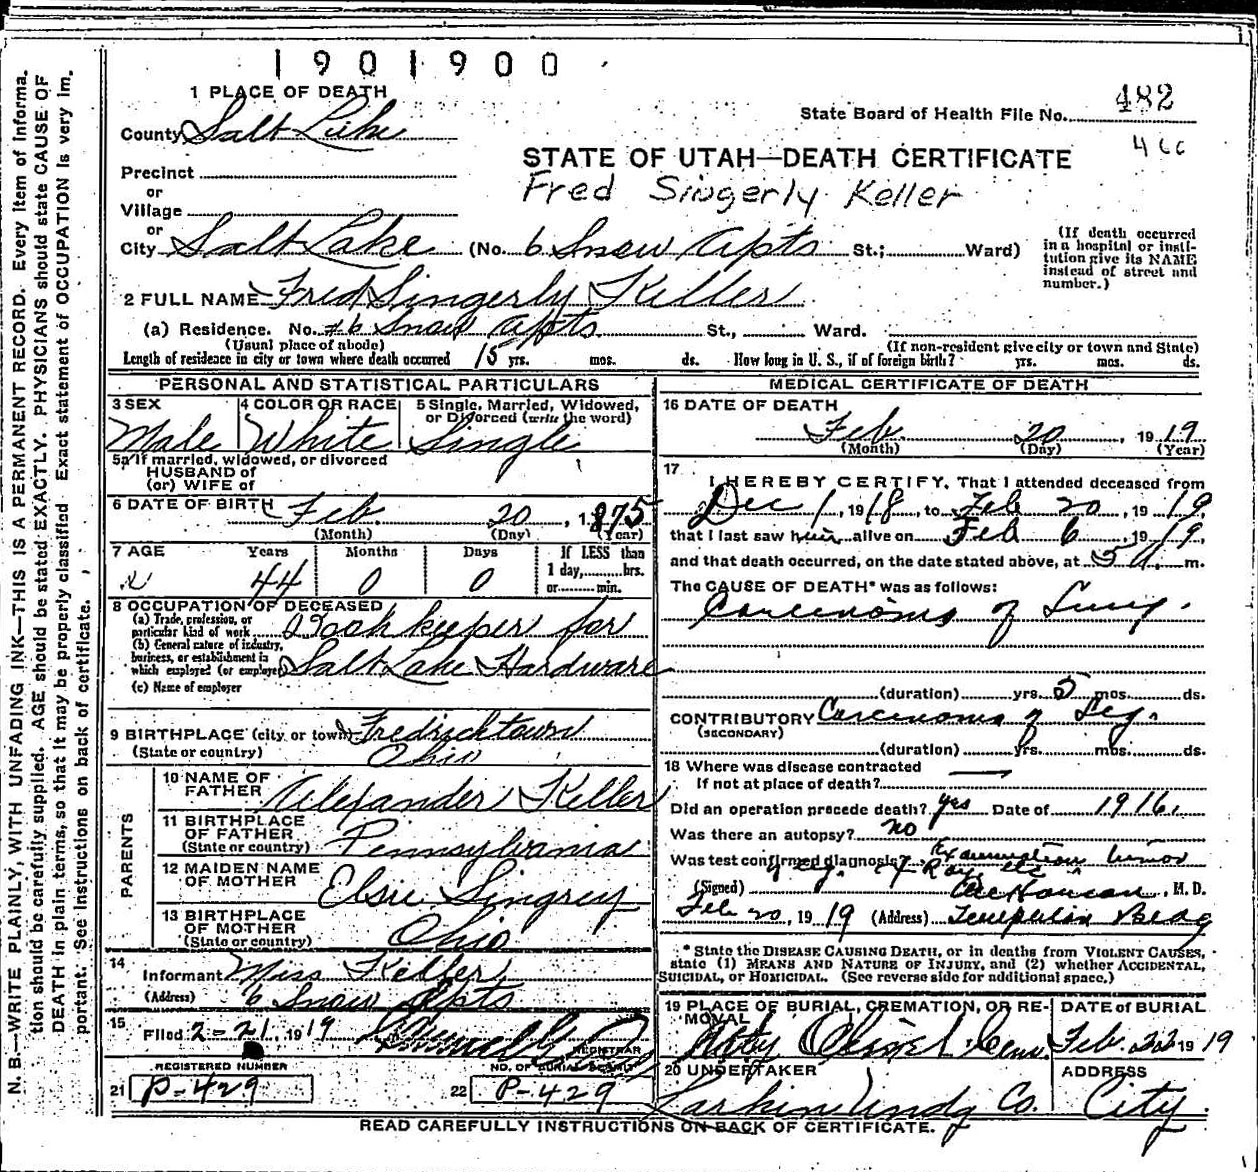 1901900
1 PLACE OF DEATH
482
State Board of Health File No.
County Salt Lake
466
STATE OF UTAH—DEATH CERTIFICATE
Precinct
Fred Singerly Keller
or
Village
or
City Salt Lake (No. 6 Snow Apts St.; Ward)
(If death occurred in a hospital or insti-
tution give its NAME instead of street and number.)
2 FULL NAME Fred Singerly Keller
(a) Residence. No. #6 Snow Apts St., Ward.
(Usual place of abode) (If non-resident give city or town and State)
Length of residence in city or town where death occurred 15 yrs. mos. ds. How long in U. S., if of foreign birth? yrs. mos. ds.
PERSONAL AND STATISTICAL PARTICULARS
3 SEX Male
4 COLOR OR RACE White
5 Single, Married, Widowed, or Divorced (write the word) Single
5a If married, widowed, or divorced
HUSBAND of
(or) WIFE of
6 DATE OF BIRTH Feb. 20, 1875
(Month) (Day) (Year)
7 AGE Years Months Days If LESS than
44 0 0 1 day, hrs.
or min.
8 OCCUPATION OF DECEASED
(a) Trade, profession, or
particular kind of work Bookkeeper for
(b) General nature of industry,
business, or establishment in
which employed (or employer) Salt Lake Hardware
(c) Name of employer
9 BIRTHPLACE (city or town) Fredricktown
(State or country) Ohio
PARENTS
10 NAME OF FATHER Alexander Keller
11 BIRTHPLACE OF FATHER (State or country) Pennsylvania
12 MAIDEN NAME OF MOTHER Elsie Singrey
13 BIRTHPLACE OF MOTHER (State or country) Ohio
14 Informant Miss Keller
(Address) 6 Snow Apts
15 Filed 2-21, 1919
REGISTRAR
REGISTERED NUMBER
21 P-429
NO. OF BURIAL PERMIT
22 P-429
MEDICAL CERTIFICATE OF DEATH
16 DATE OF DEATH
Feb. 20, 1919
(Month) (Day) (Year)
17 I HEREBY CERTIFY, That I attended deceased from
Dec 1, 1918, to Feb 20, 1919
that I last saw him alive on Feb 6, 1919,
and that death occurred, on the date stated above, at 5 a. m.
The CAUSE OF DEATH* was as follows:
Carcinoma of Lung.
(duration) yrs. 5 mos. ds.
CONTRIBUTORY Carcinoma of Leg.
(SECONDARY)
(duration) yrs. mos. ds.
18 Where was disease contracted
if not at place of death?
Did an operation precede death? yes Date of 1916.
Was there an autopsy? no
Was test confirmed diagnosis? Examination tumor
of leg. X Ray etc
(Signed) M. D.
Feb 20, 1919 (Address) Templeton Bldg
* State the DISEASE CAUSING DEATH, or in deaths from VIOLENT CAUSES,
state (1) MEANS AND NATURE OF INJURY, and (2) whether ACCIDENTAL,
SUICIDAL, or HOMICIDAL. (See reverse side for additional space.)
19 PLACE OF BURIAL, CREMATION, OR RE-
MOVAL
Mt. Olivet Cem.
DATE OF BURIAL
Feb. 22 1919
20 UNDERTAKER
Larkin Undg Co.
ADDRESS
City.
READ CAREFULLY INSTRUCTIONS ON BACK OF CERTIFICATE.
N. B.—WRITE PLAINLY, WITH UNFADING INK—THIS IS A PERMANENT RECORD. Every item of informa-
tion should be carefully supplied. AGE should be stated EXACTLY. PHYSICIANS should state CAUSE OF
DEATH in plain terms, so that it may be properly classified. Exact statement of OCCUPATION is very im-
portant. See instructions on back of certificate.